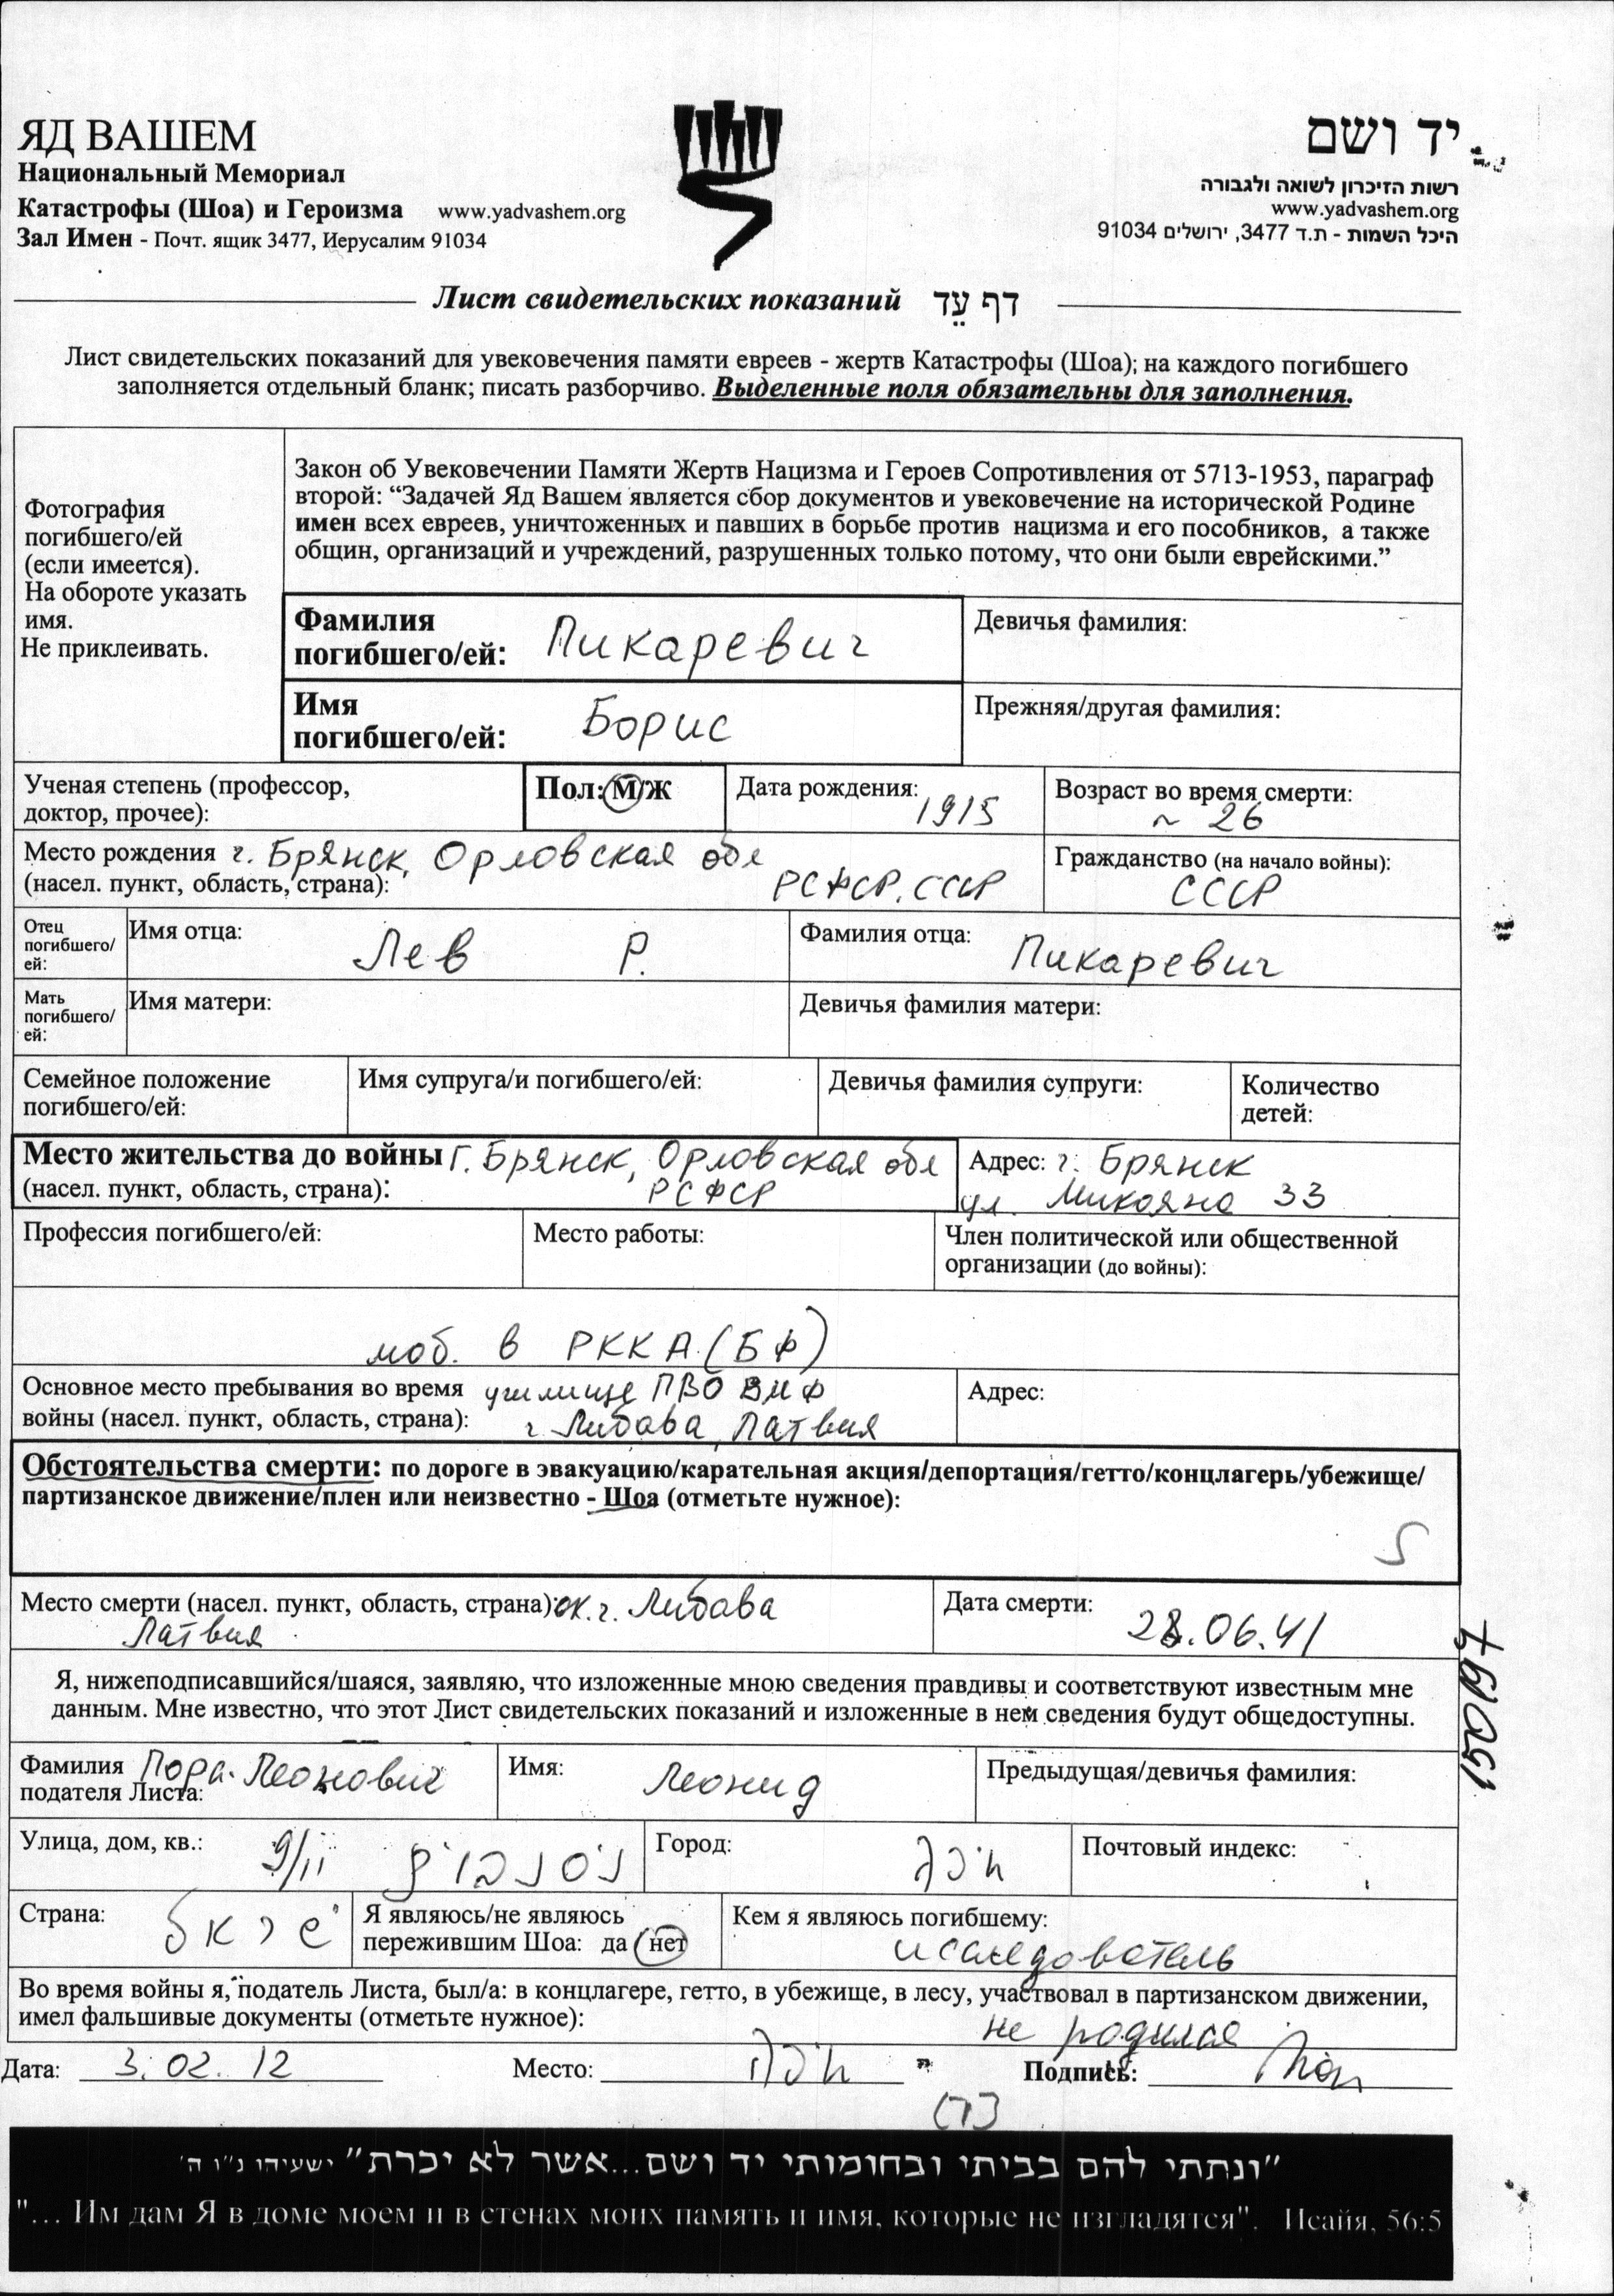 ЯД ВАШЕМ
Национальный Мемориал
Катастрофы (Шоа) и Героизма www.yadvashem.org
Зал Имен - Почт. ящик 3477, Иерусалим 91034
יד ושם
רשות הזיכרון לשואה ולגבורה
www.yadvashem.org
היכל השמות - ת.ד 3477, ירושלים 91034
Лист свидетельских показаний דף עֵד
Лист свидетельских показаний для увековечения памяти евреев - жертв Катастрофы (Шоа); на каждого погибшего
заполняется отдельный бланк; писать разборчиво. Выделенные поля обязательны для заполнения.
Фотография
погибшего/ей
(если имеется).
На обороте указать
имя.
Не приклеивать.
Закон об Увековечении Памяти Жертв Нацизма и Героев Сопротивления от 5713-1953, параграф
второй: “Задачей Яд Вашем является сбор документов и увековечение на исторической Родине
имен всех евреев, уничтоженных и павших в борьбе против нацизма и его пособников, а также
общин, организаций и учреждений, разрушенных только потому, что они были еврейскими.”
Фамилия
погибшего/ей: Пикаревич
Девичья фамилия:
Имя
погибшего/ей: Борис
Прежняя/другая фамилия:
Ученая степень (профессор,
доктор, прочее):
Пол: М/Ж
Дата рождения: 1915
Возраст во время смерти:
~ 26
Место рождения г. Брянск, Орловская обл
(насел. пункт, область, страна): РСФСР. СССР
Гражданство (на начало войны):
СССР
Отец
погибшего/
ей:
Имя отца: Лев Р.
Фамилия отца: Пикаревич
Мать
погибшего/
ей:
Имя матери:
Девичья фамилия матери:
Семейное положение
погибшего/ей:
Имя супруга/и погибшего/ей:
Девичья фамилия супруги:
Количество
детей:
Место жительства до войны г. Брянск, Орловская обл
(насел. пункт, область, страна): РСФСР
Адрес: г. Брянск
ул. Микояна 33
Профессия погибшего/ей:
Место работы:
Член политической или общественной
организации (до войны):
моб. в РККА (БФ)
Основное место пребывания во время училище ПВО ВМФ
войны (насел. пункт, область, страна): г. Либава, Латвия
Адрес:
Обстоятельства смерти: по дороге в эвакуацию/карательная акция/депортация/гетто/концлагерь/убежище/
партизанское движение/плен или неизвестно - Шоа (отметьте нужное):
Место смерти (насел. пункт, область, страна): ок. г. Либава
Латвия
Дата смерти:
28.06.41
Я, нижеподписавшийся/шаяся, заявляю, что изложенные мною сведения правдивы и соответствуют известным мне
данным. Мне известно, что этот Лист свидетельских показаний и изложенные в нем сведения будут общедоступны.
150197
Фамилия Пора-Леонович
подателя Листа:
Имя: Леонид
Предыдущая/девичья фамилия:
Улица, дом, кв.: 9/11
Город: חיפה
Почтовый индекс:
Страна: ישראל
Я являюсь/не являюсь
пережившим Шоа: да нет
Кем я являюсь погибшему:
исследователь
Во время войны я, податель Листа, был/а: в концлагере, гетто, в убежище, в лесу, участвовал в партизанском движении,
имел фальшивые документы (отметьте нужное): не родился
Дата: 3. 02. 12
Место: חיפה
Подпись:
"ונתתי להם בביתי ובחומותי יד ושם...אשר לא יכרת" ישעיהו נ"ו ה'
"... Им дам Я в доме моем и в стенах моих память и имя, которые не изгладятся". Исайя, 56:5